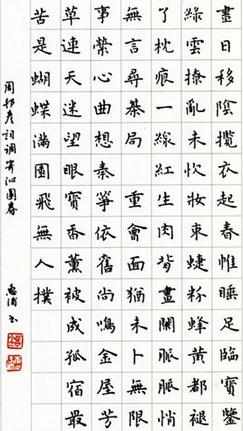 晝日移陰攬衣起春帷睡足臨寶鑒
綠雲撩亂未忺妝束蜨粉蜂黃都褪
了枕痕一線紅生肉背畫闌脈脈悄
無言尋棊局重會面猶未卜無限
事縈心曲想秦箏依舊尚鳴金屋芳
草連天迷望眼寶香薰被成孤宿最
苦是蝴蝶滿園飛無人撲
周邦彥詞調寄沁園春